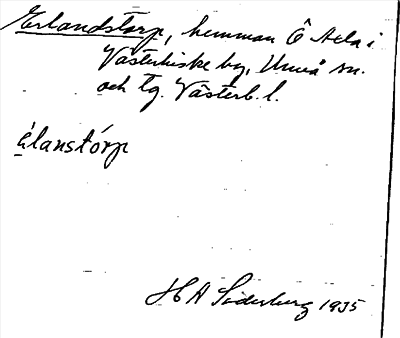 Erlandstorp, hemman Ö Aela i
Västerhiske by, Umeå sn.
och tg. Västerb. l.
èlanstórp
H A Söderberg 1935